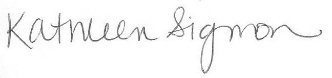 Kathleen Sigmon